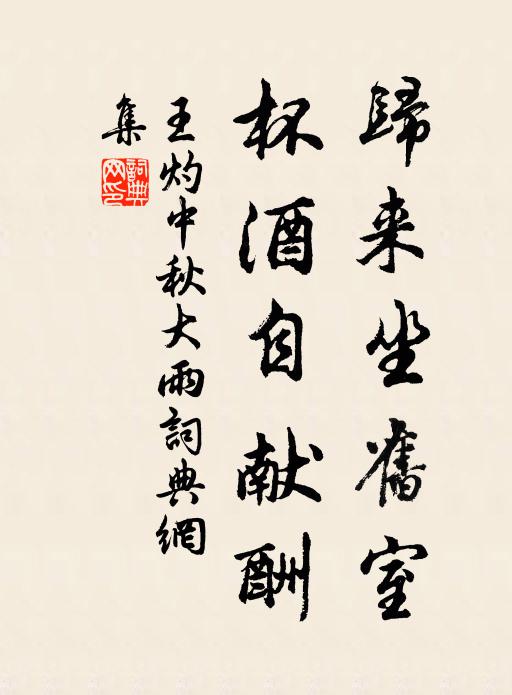 歸来坐舊室
杯酒自献酬
王灼中秋大雨詞典網
集
詞典網印